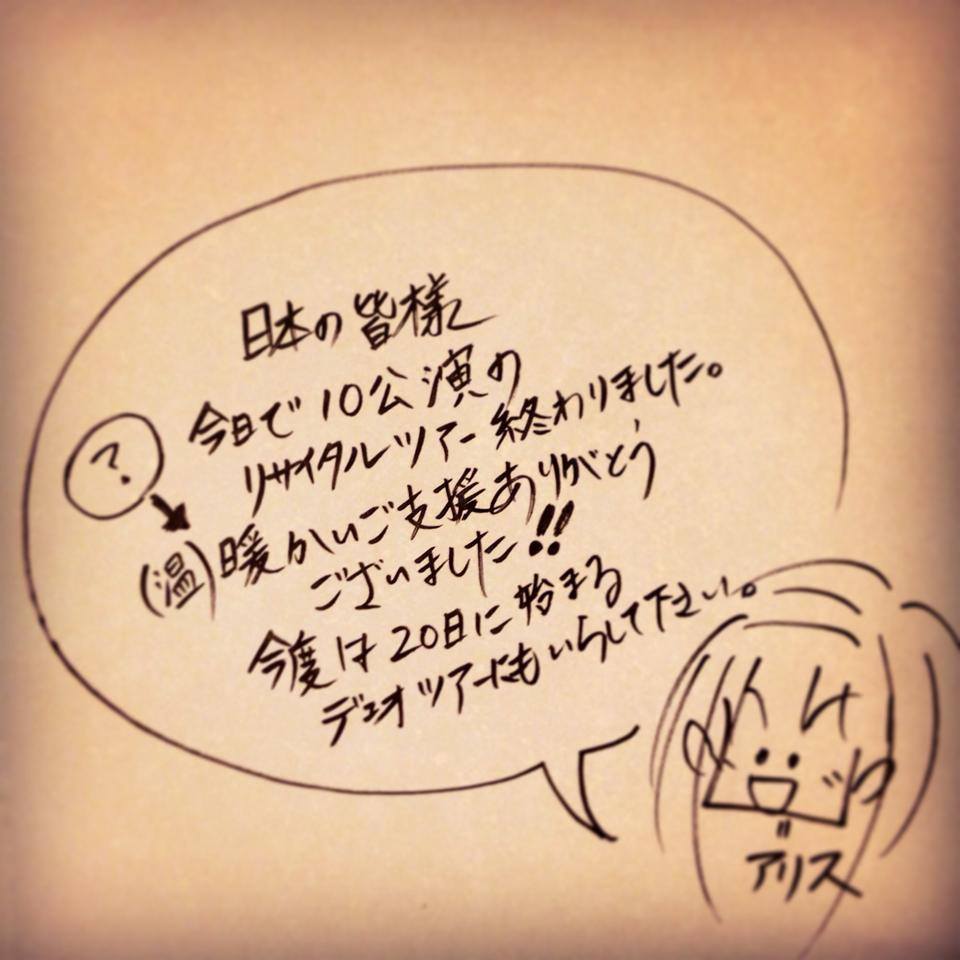 日本の皆様
今日で10公演の
リサイタルツアー終わりました。
?
(温)暖かいご支援ありがとう
ございました!!
今度は20日に始まる
デュオツアーにもいらして下さい。
アリス